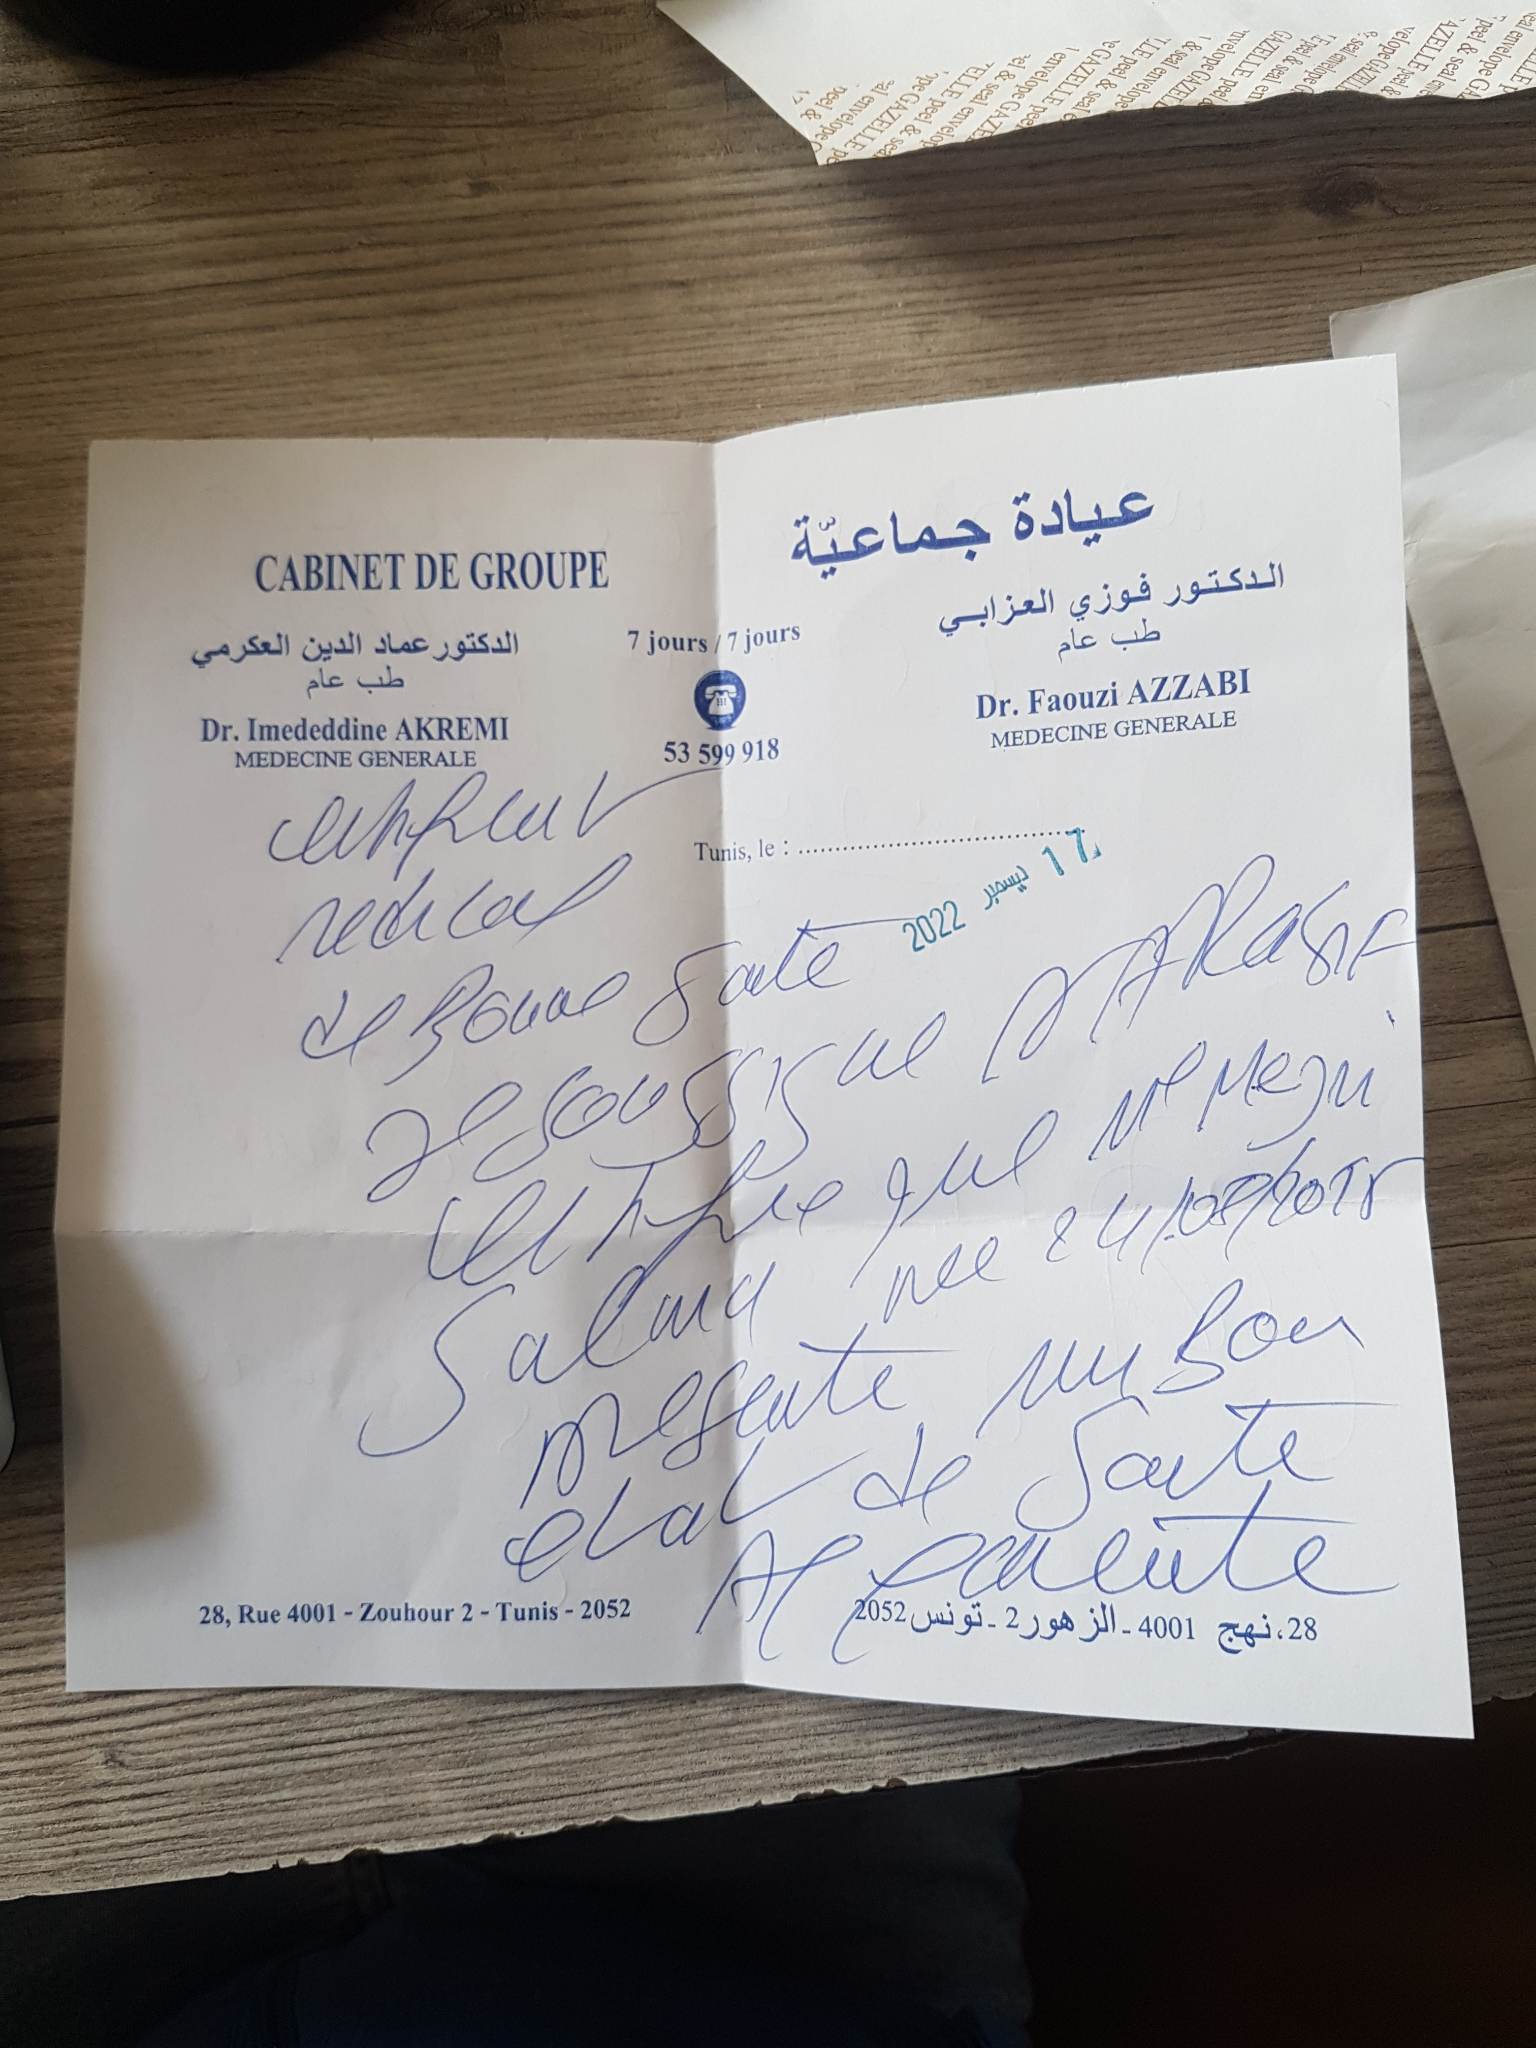 peel & seal envelope GAZELLE
CABINET DE GROUPE
عيادة جماعيّة
الدكتور عماد الدين العكرمي
طب عام
Dr. Imededdine AKREMI
MEDECINE GENERALE
7 jours / 7 jours
53 599 918
الدكتور فوزي العزابي
طب عام
Dr. Faouzi AZZABI
MEDECINE GENERALE
Tunis, le :
17 ديسمبر 2022
certificat
medical
de Bonne Sante
Je soussigne
certifie que Mezni
Salma nee 24/08/2018
presente un Bon
etat de Sante
Apparente
28, Rue 4001 - Zouhour 2 - Tunis - 2052
28، نهج 4001 ـ الزهور 2 ـ تونس 2052